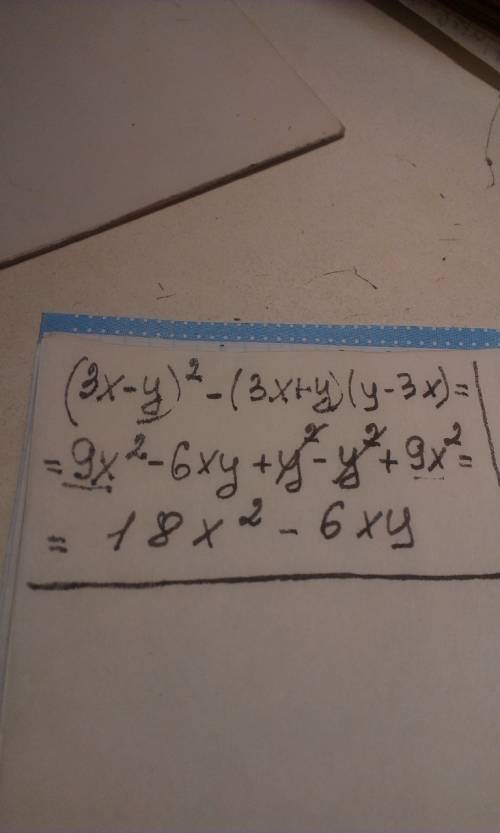 (3x-y)²-(3x+y)(y-3x)=
=9x²-6xy+y²-y²+9x²=
= 18x²-6xy